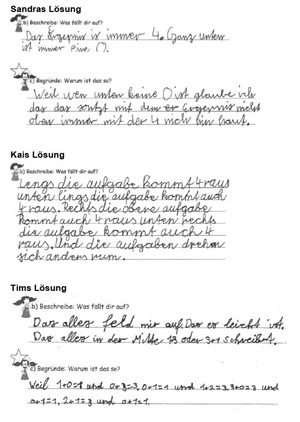 Sandras Lösung
b) Beschreibe: Was fällt dir auf?
Das Ergebnis is immer 4. Ganz unten
ist immer eine 0.
c) Begründe: Warum ist das so?
Weil wen unten keine 0 ist glaube ich
das das mit dem er Ergebnis nicht
oben immer mit der 4 nich hin haut.
Kais Lösung
b) Beschreibe: Was fällt dir auf?
Lengs die aufgabe kommt 4 raus
unten lings die aufgabe kommt auch
4 raus. Rechts die obere aufgabe
kommt auch 4 raus unten rechts
die aufgabe kommt auch 4
raus. Und die aufgaben drehen
sich anders rum.
Tims Lösung
b) Beschreibe: Was fällt dir auf?
Das alles feld mir auf. Das es leicht ist.
Das alles in der Mitte 13 oder 3+1 Schreibst.
c) Begründe: Warum ist das so?
Weil 1+0=1 und 0+3=3, 0+1=1 und 1+2=3, 3+0=3 und
0+1=1, 2+1=3 und 0+1=1.